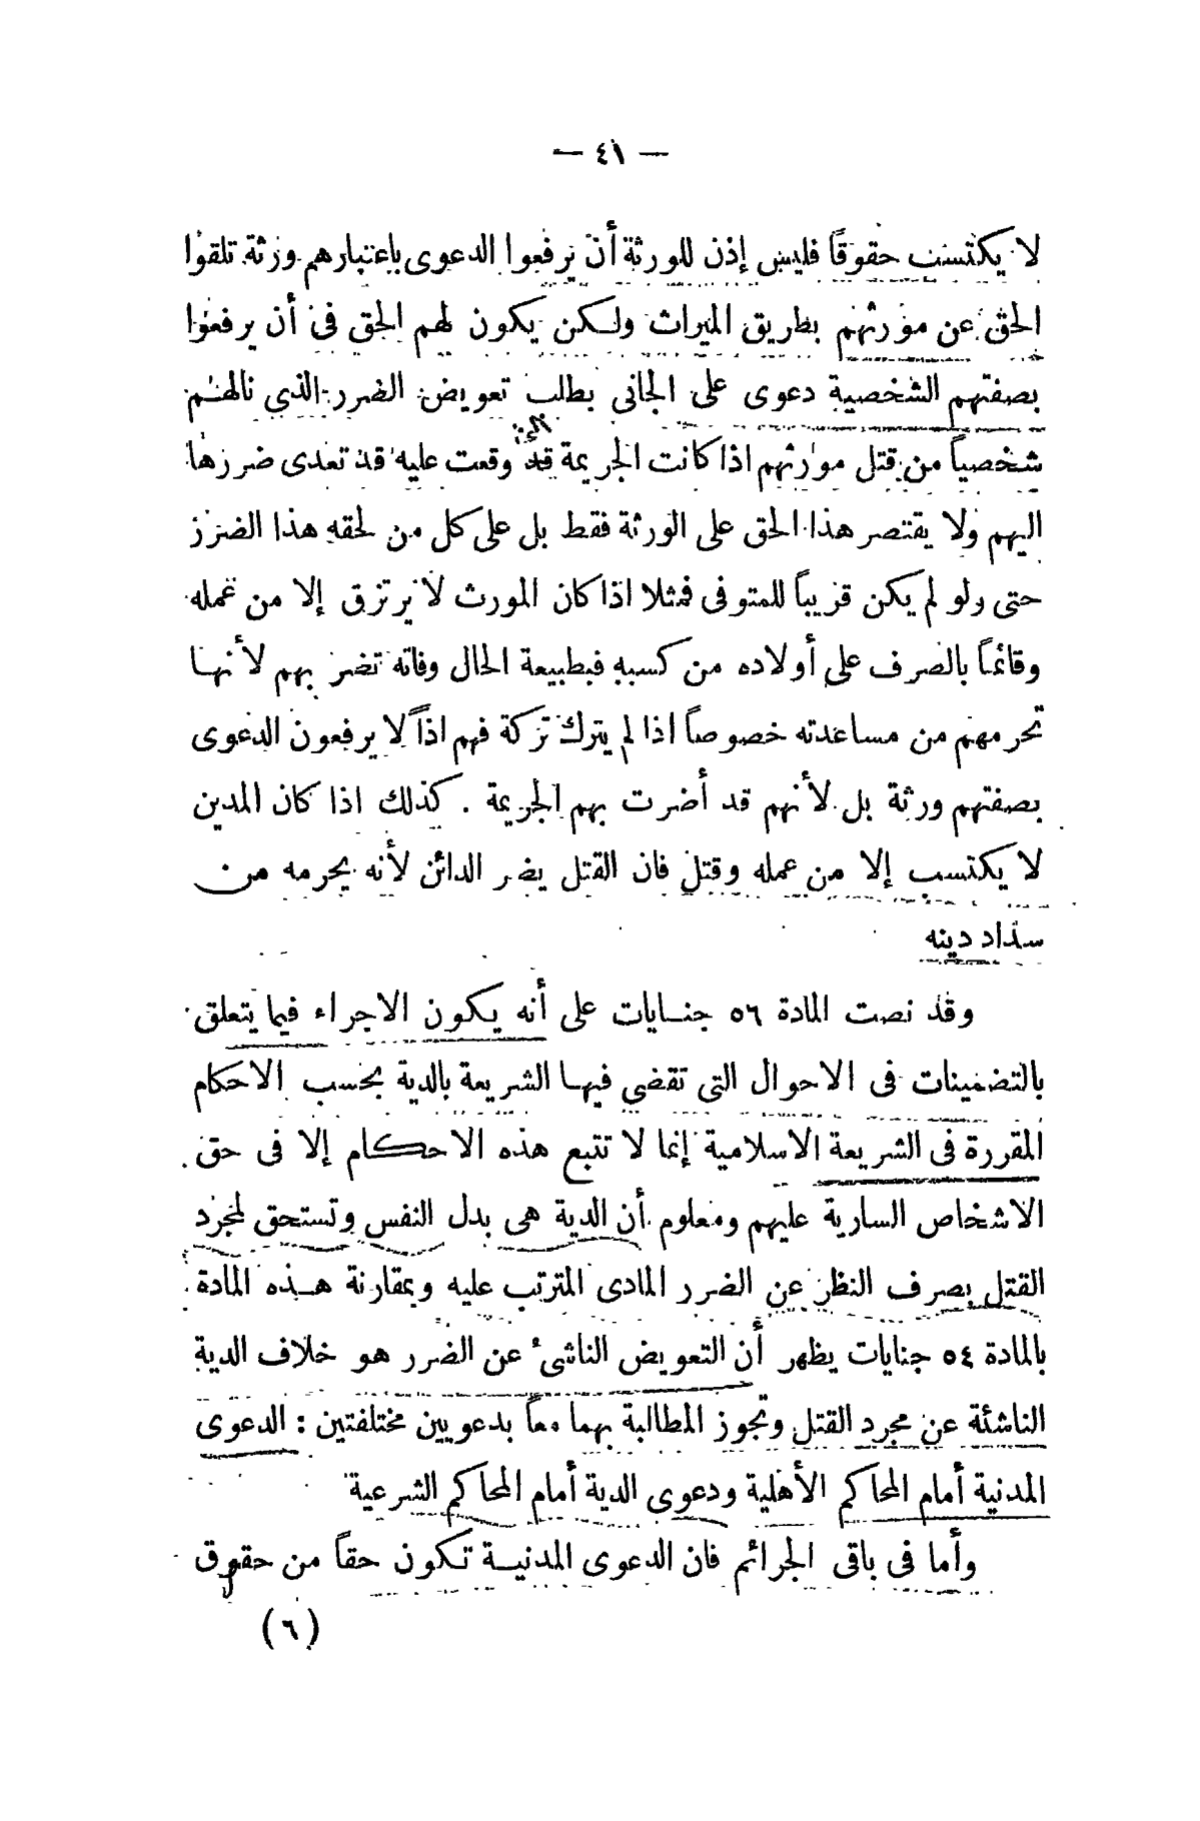 — ٤١ —
لا يكتسب حقوقاً فليس إذن للورثة أن يرفعوا الدعوى باعتبارهم ورثة تلقوا
الحق عن مورثهم بطريق الميراث ولكن يكون لهم الحق فى أن يرفعوا
بصفتهم الشخصية دعوى على الجانى بطلب تعويض الضرر الذي نالهم
شخصياً من قتل مورثهم اذا كانت الجريمة قد وقعت عليه قد تعدى ضررها
اليهم ولا يقتصر هذا الحق على الورثة فقط بل على كل من لحقه هذا الضرر
حتى ولو لم يكن قريباً للمتوفى فمثلا اذا كان المورث لا يرتزق إلا من عمله
وقائماً بالصرف على أولاده من كسبه فبطبيعة الحال وفاته تضر بهم لأنها
تحرمهم من مساعدته خصوصاً اذا لم يترك تركة فهم اذاً لا يرفعون الدعوى
بصفتهم ورثة بل لأنهم قد أضرت بهم الجريمة . كذلك اذا كان المدين
لا يكتسب إلا من عمله وقتل فان القتل يضر الدائن لأنه يحرمه من
سداد دينه
وقد نصت المادة ٥٦ جنايات على أنه يكون الاجراء فيما يتعلق
بالتضمينات فى الاحوال التى تقضى فيها الشريعة بالدية بحسب الاحكام
المقررة فى الشريعة الاسلامية إنما لا تتبع هذه الاحكام إلا فى حق
الاشخاص السارية عليهم ومعلوم أن الدية هى بدل النفس وتستحق لمجرد
القتل بصرف النظر عن الضرر المادى المترتب عليه وبمقارنة هذه المادة
بالمادة ٥٤ جنايات يظهر أن التعويض الناشىء عن الضرر هو خلاف الدية
الناشئة عن مجرد القتل وتجوز المطالبة بهما معاً بدعويين مختلفتين : الدعوى
المدنية أمام المحاكم الأهلية ودعوى الدية أمام المحاكم الشرعية
وأما فى باقى الجرائم فان الدعوى المدنية تكون حقاً من حقوق
(٦)